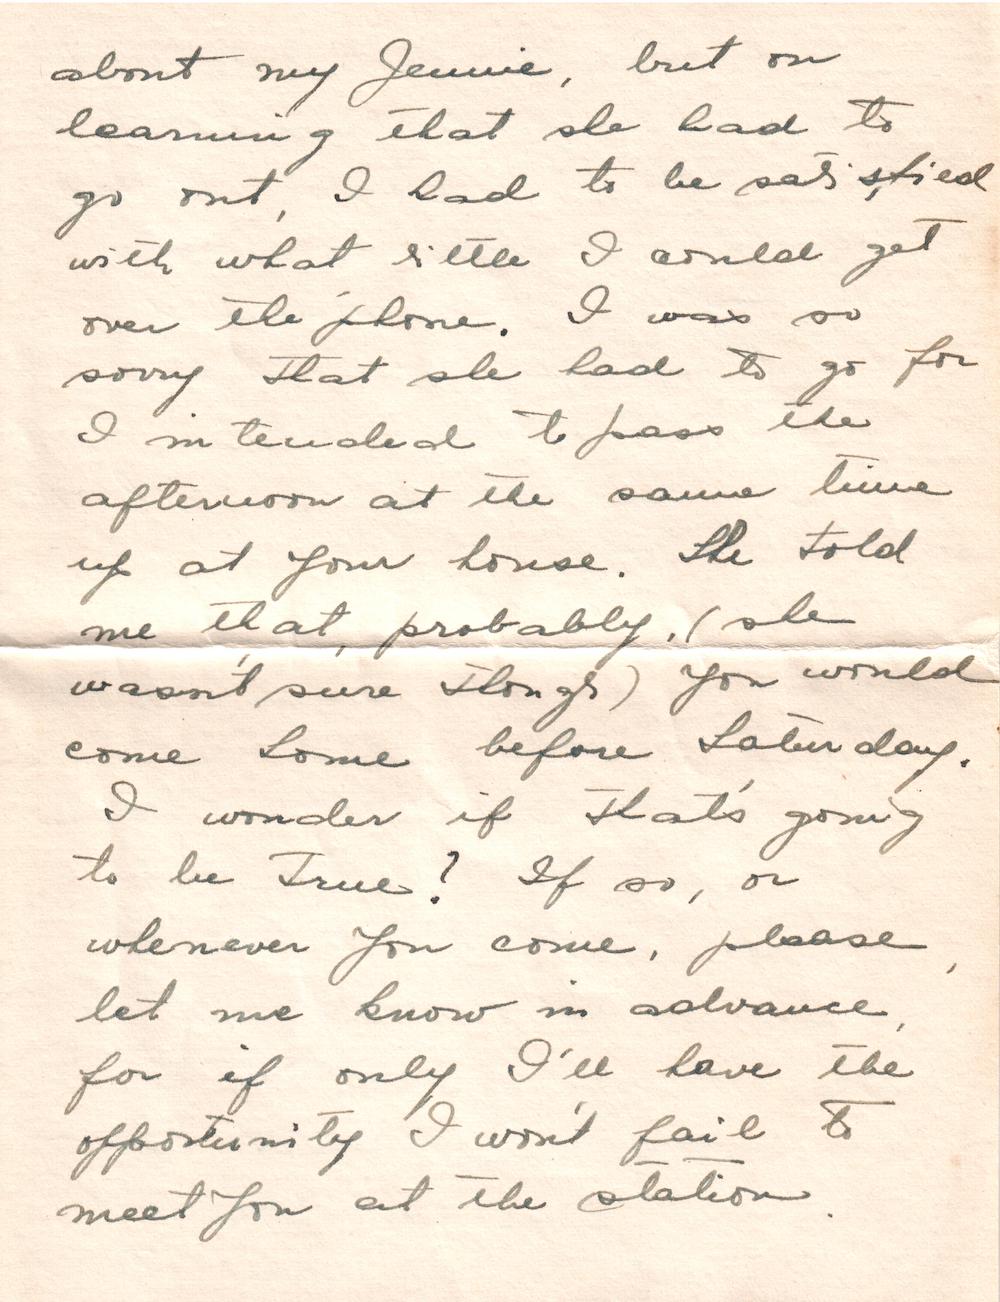 about my Jennie, but on
learning that she had to
go out, I had to be satisfied
with what little I could get
over the 'phone. I was so
sorry that she had to go for
I intended to pass the
afternoon at the same time
up at your house. She told
me that, probably, (she
wasn't sure though) you would
come home before Saturday.
I wonder if that's going
to be true? If so, or
whenever you come, please,
let me know in advance,
for if only I'll have the
opportunity I won't fail to
meet you at the station.